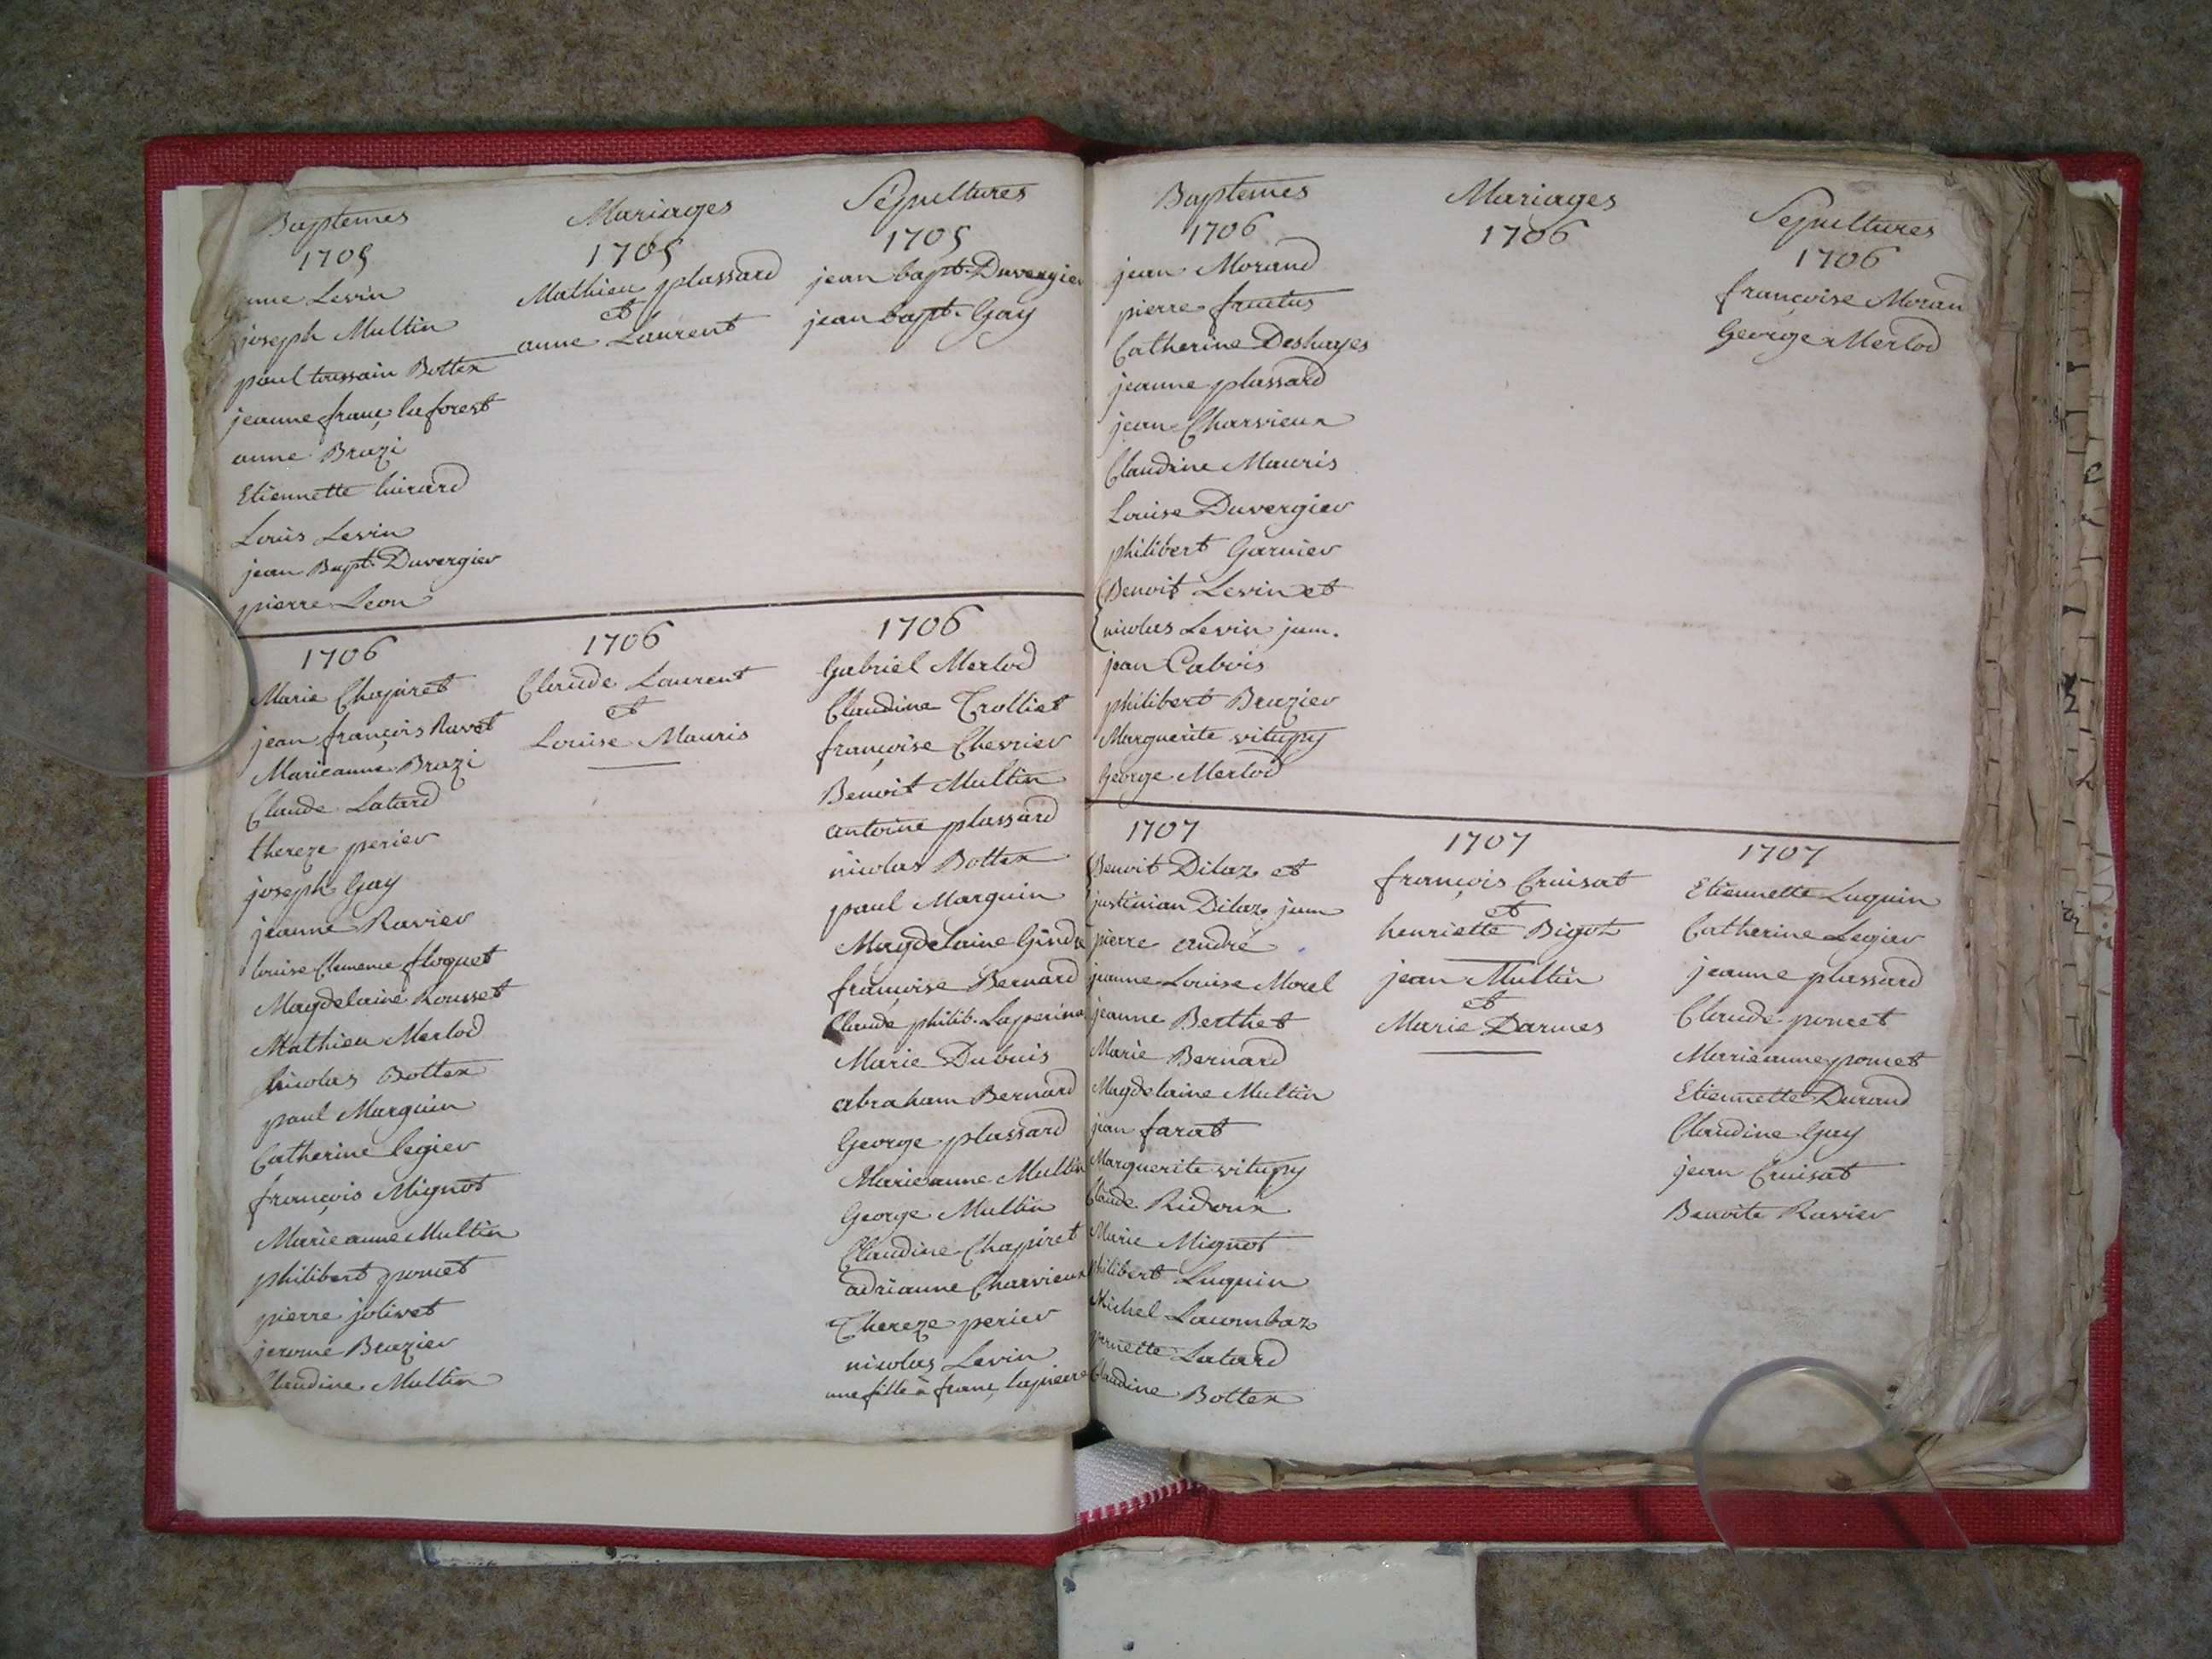 Baptemes
1705
anne Levin
joseph Multin
paul toussain Bottex
jeanne franç. laforest
anne Brazi
Etiennette huirard
Louis Levin
jean Bapt. Duvergier
pierre Leon
Mariages
1705
Mathieu plassard
et
anne Laurent
Sepultures
1705
jean bapt. Duvergier
jean bapt. Gay
1706
Marie Chapiret
jean françois Ravet
Marieanne Brazi
Claude Latard
thereze perier
joseph Gay
jeanne Ravier
louise Clemence floquet
Magdelaine Rousset
Mathieu Merlod
nicolas Bottex
paul Marguin
Catherine legier
françois Mignot
Marieanne Multin
philibert poncet
pierre jolivet
jerome Brazier
Claudine Multin
1706
Claude Laurent
et
Louise Mauris
1706
Gabriel Merlod
Claudine Trolliet
françoise Chevrier
Benoit Multin
antoine plassard
nicolas Bottex
paul Marguin
Magdelaine
françoise Bernard
Claude philib.
Marie Dubuis
abraham Bernard
George plassard
Marieanne Multin
George Multin
Claudine Chapiret
adrianne Charvieux
Thereze perier
nicolas Levin
une fille à franç.
Baptemes
1706
jean Morand
pierre fructus
Catherine Deshayes
jeanne plassard
jean Charvieux
Claudine Mauris
Louise Duvergier
philibert Garnier
Benoit Levin et
nicolas Levin jum.
jean Cabois
philibert Brazier
Marguerite vitupy
George Merlod
Mariages
1706
Sepultures
1706
françoise Moran
George Merlod
1707
Benoit Dilaz et
justinian Dilaz jum
pierre andré
jeanne Louise Morel
jeanne Berthet
Marie Bernard
Magdelaine Multin
jean farat
Marguerite vitupy
Claude Ridoux
Marie Mignot
philibert Luguin
Michel Lacombaz
pernette Latard
Claudine Bottex
1707
françois Cruisat
et
henriette Bigot
jean Multin
et
Marie Darmes
1707
Etiennette Luguin
Catherine Legier
jeanne plassard
Claude poncet
Marieanne poncet
Etiennette Durand
Claudine Gay
jean Cruisat
Benoite Ravier